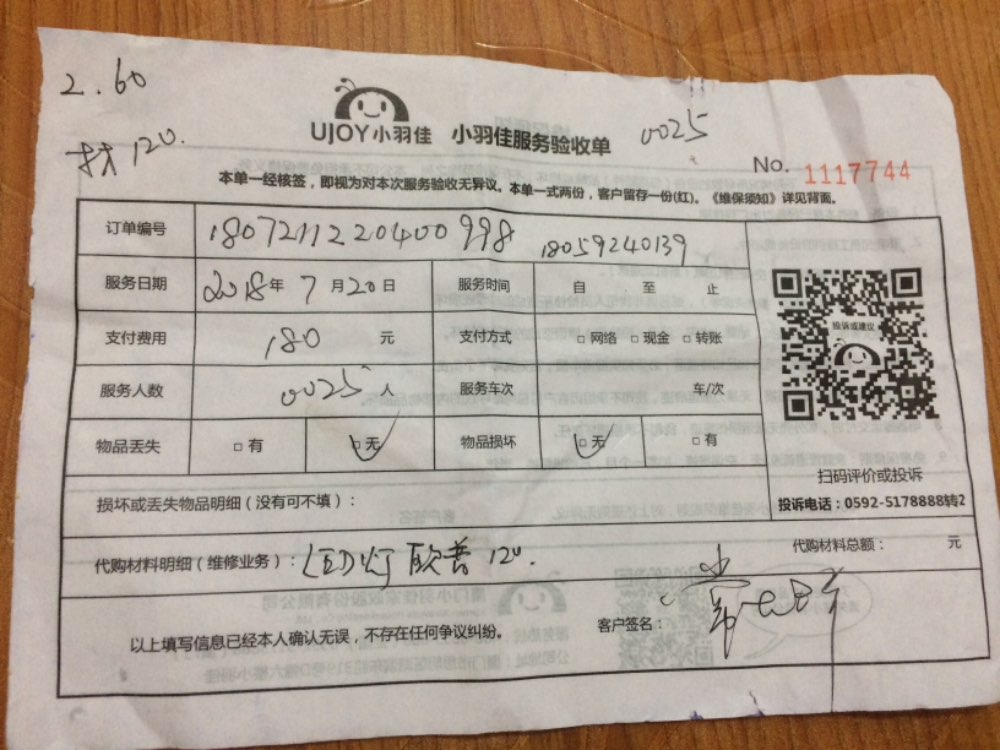 2.60
材 120.
UJOY小羽佳 小羽佳服务验收单
0025
No. 1117744
本单一经核签，即视为对本次服务验收无异议。本单一式两份，客户留存一份(红)。《维保须知》详见背面。
订单编号 1807211220400998 18059240139
服务日期 2018年 7 月20日 服务时间 自 至 止
支付费用 180 元 支付方式 □ 网络 □ 现金 □ 转账
服务人数 0025 人 服务车次 车/次
物品丢失 □ 有 □ 无 物品损坏 □ 无 □ 有
投诉或建议
扫码评价或投诉
投诉电话：0592-5178888转2
损坏或丢失物品明细（没有可不填）：
代购材料明细（维修业务）： LED灯 欧普 120. 代购材料总额： 元
以上填写信息已经本人确认无误，不存在任何争议纠纷。 客户签名：